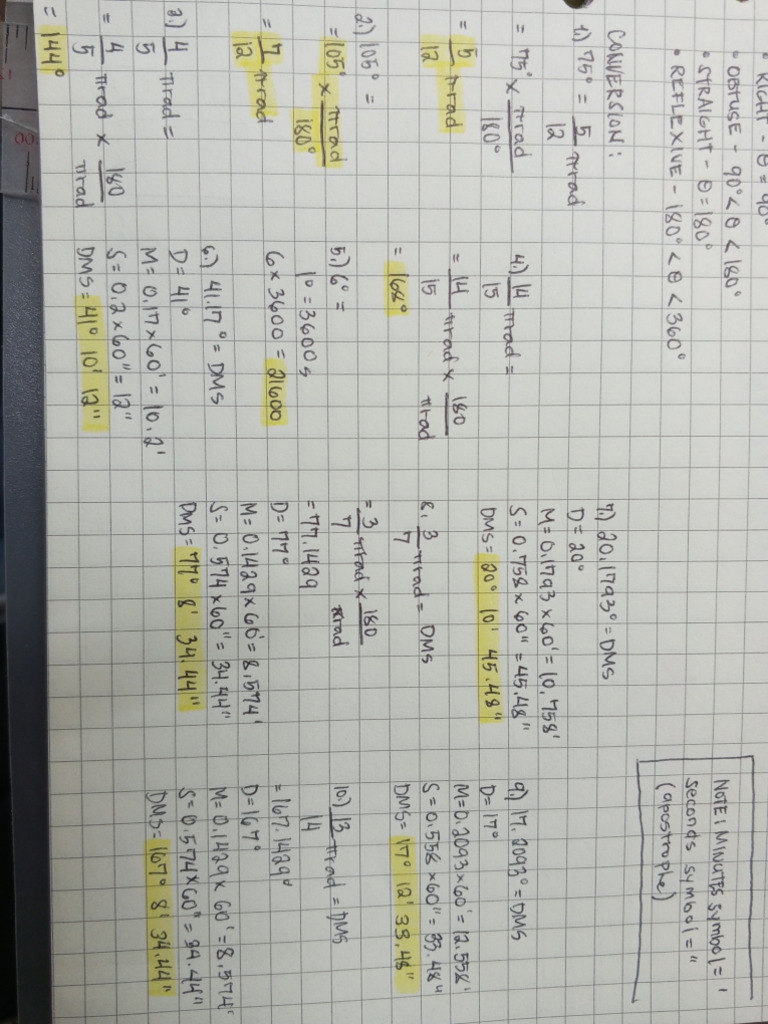 • RIGHT - θ = 90°
• OBTUSE - 90° < θ < 180°
• STRAIGHT - θ = 180°
• REFLEXIVE - 180° < θ < 360°
CONVERSION:
1.) 75° = 5/12 πrad
= 75° × πrad/180°
= 5/12 πrad
2.) 105° =
= 105° × πrad/180°
= 7/12 πrad
3.) 4/5 πrad =
= 4/5 πrad × 180/πrad
= 144°
4.) 14/15 πrad =
= 14/15 πrad × 180/πrad
= 168°
5.) 6° =
1° = 3600s
6 × 3600 = 21600
6.) 41.17° = DMS
D = 41°
M = 0.17 × 60' = 10.2'
S = 0.2 × 60" = 12"
DMS = 41° 10' 12"
7.) 20.1793° = DMS
D = 20°
M = 0.1793 × 60' = 10.758'
S = 0.758 × 60" = 45.48"
DMS = 20° 10' 45.48"
8. 3/7 πrad = DMS
= 3/7 πrad × 180/πrad
= 77.1429
D = 77°
M = 0.1429 × 60' = 8.574'
S = 0.574 × 60" = 34.44"
DMS = 77° 8' 34.44"
NOTE: MINUTES symbol = '
seconds symbol = "
(apostrophe)
9.) 17.2093° = DMS
D = 17°
M = 0.2093 × 60' = 12.558'
S = 0.558 × 60" = 33.48"
DMS = 17° 12' 33.48"
10.) 13/14 πrad = DMS
= 167.1429°
D = 167°
M = 0.1429 × 60' = 8.574'
S = 0.574 × 60" = 34.44"
DMS = 167° 8' 34.44"